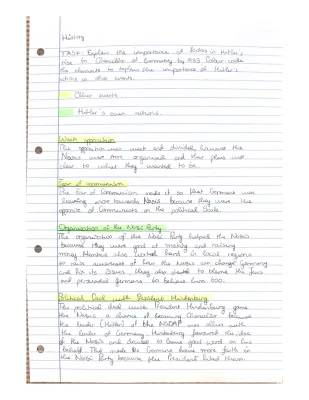 History
TASK: Explain the importance of factors in Hitler's
rise to Chancellor of Germany by 1933. Colour code
the elements to explain the importance of Hitler's
actions or other events.
Other events
Hitler's own actions.
Weak opposition
The opposition was weak and divided whereas the
Nazis were more organised and their plans were
clear to what they wanted to be.
Fear of communism
The fear of Communism made it so that Germans were
leaning more towards Nazis because they were the
opposite of Communists on the political scale.
Organisation of the Nazi Party
The organisation of the Nazi Party helped the Nazis
because they were good at making and raising
money. Members also worked hard in local regions
to raise awareness of how the Nazis can change Germany
and fix its issues. They also dealt to blame the Jews
and persuaded Germans to believe them too.
Political Deal with President Hindenburg
The political deal with President Hindenburg gave
the Nazis a chance of becoming Chancellor because
the leader (Hitler) of the NSDAP was allies with
the leader of Germany. Hindenburg favoured the idea
of the Nazis and decided to have good word on their
behalf. This made the Germans have more faith in
the Nazi Party because their President liked them.